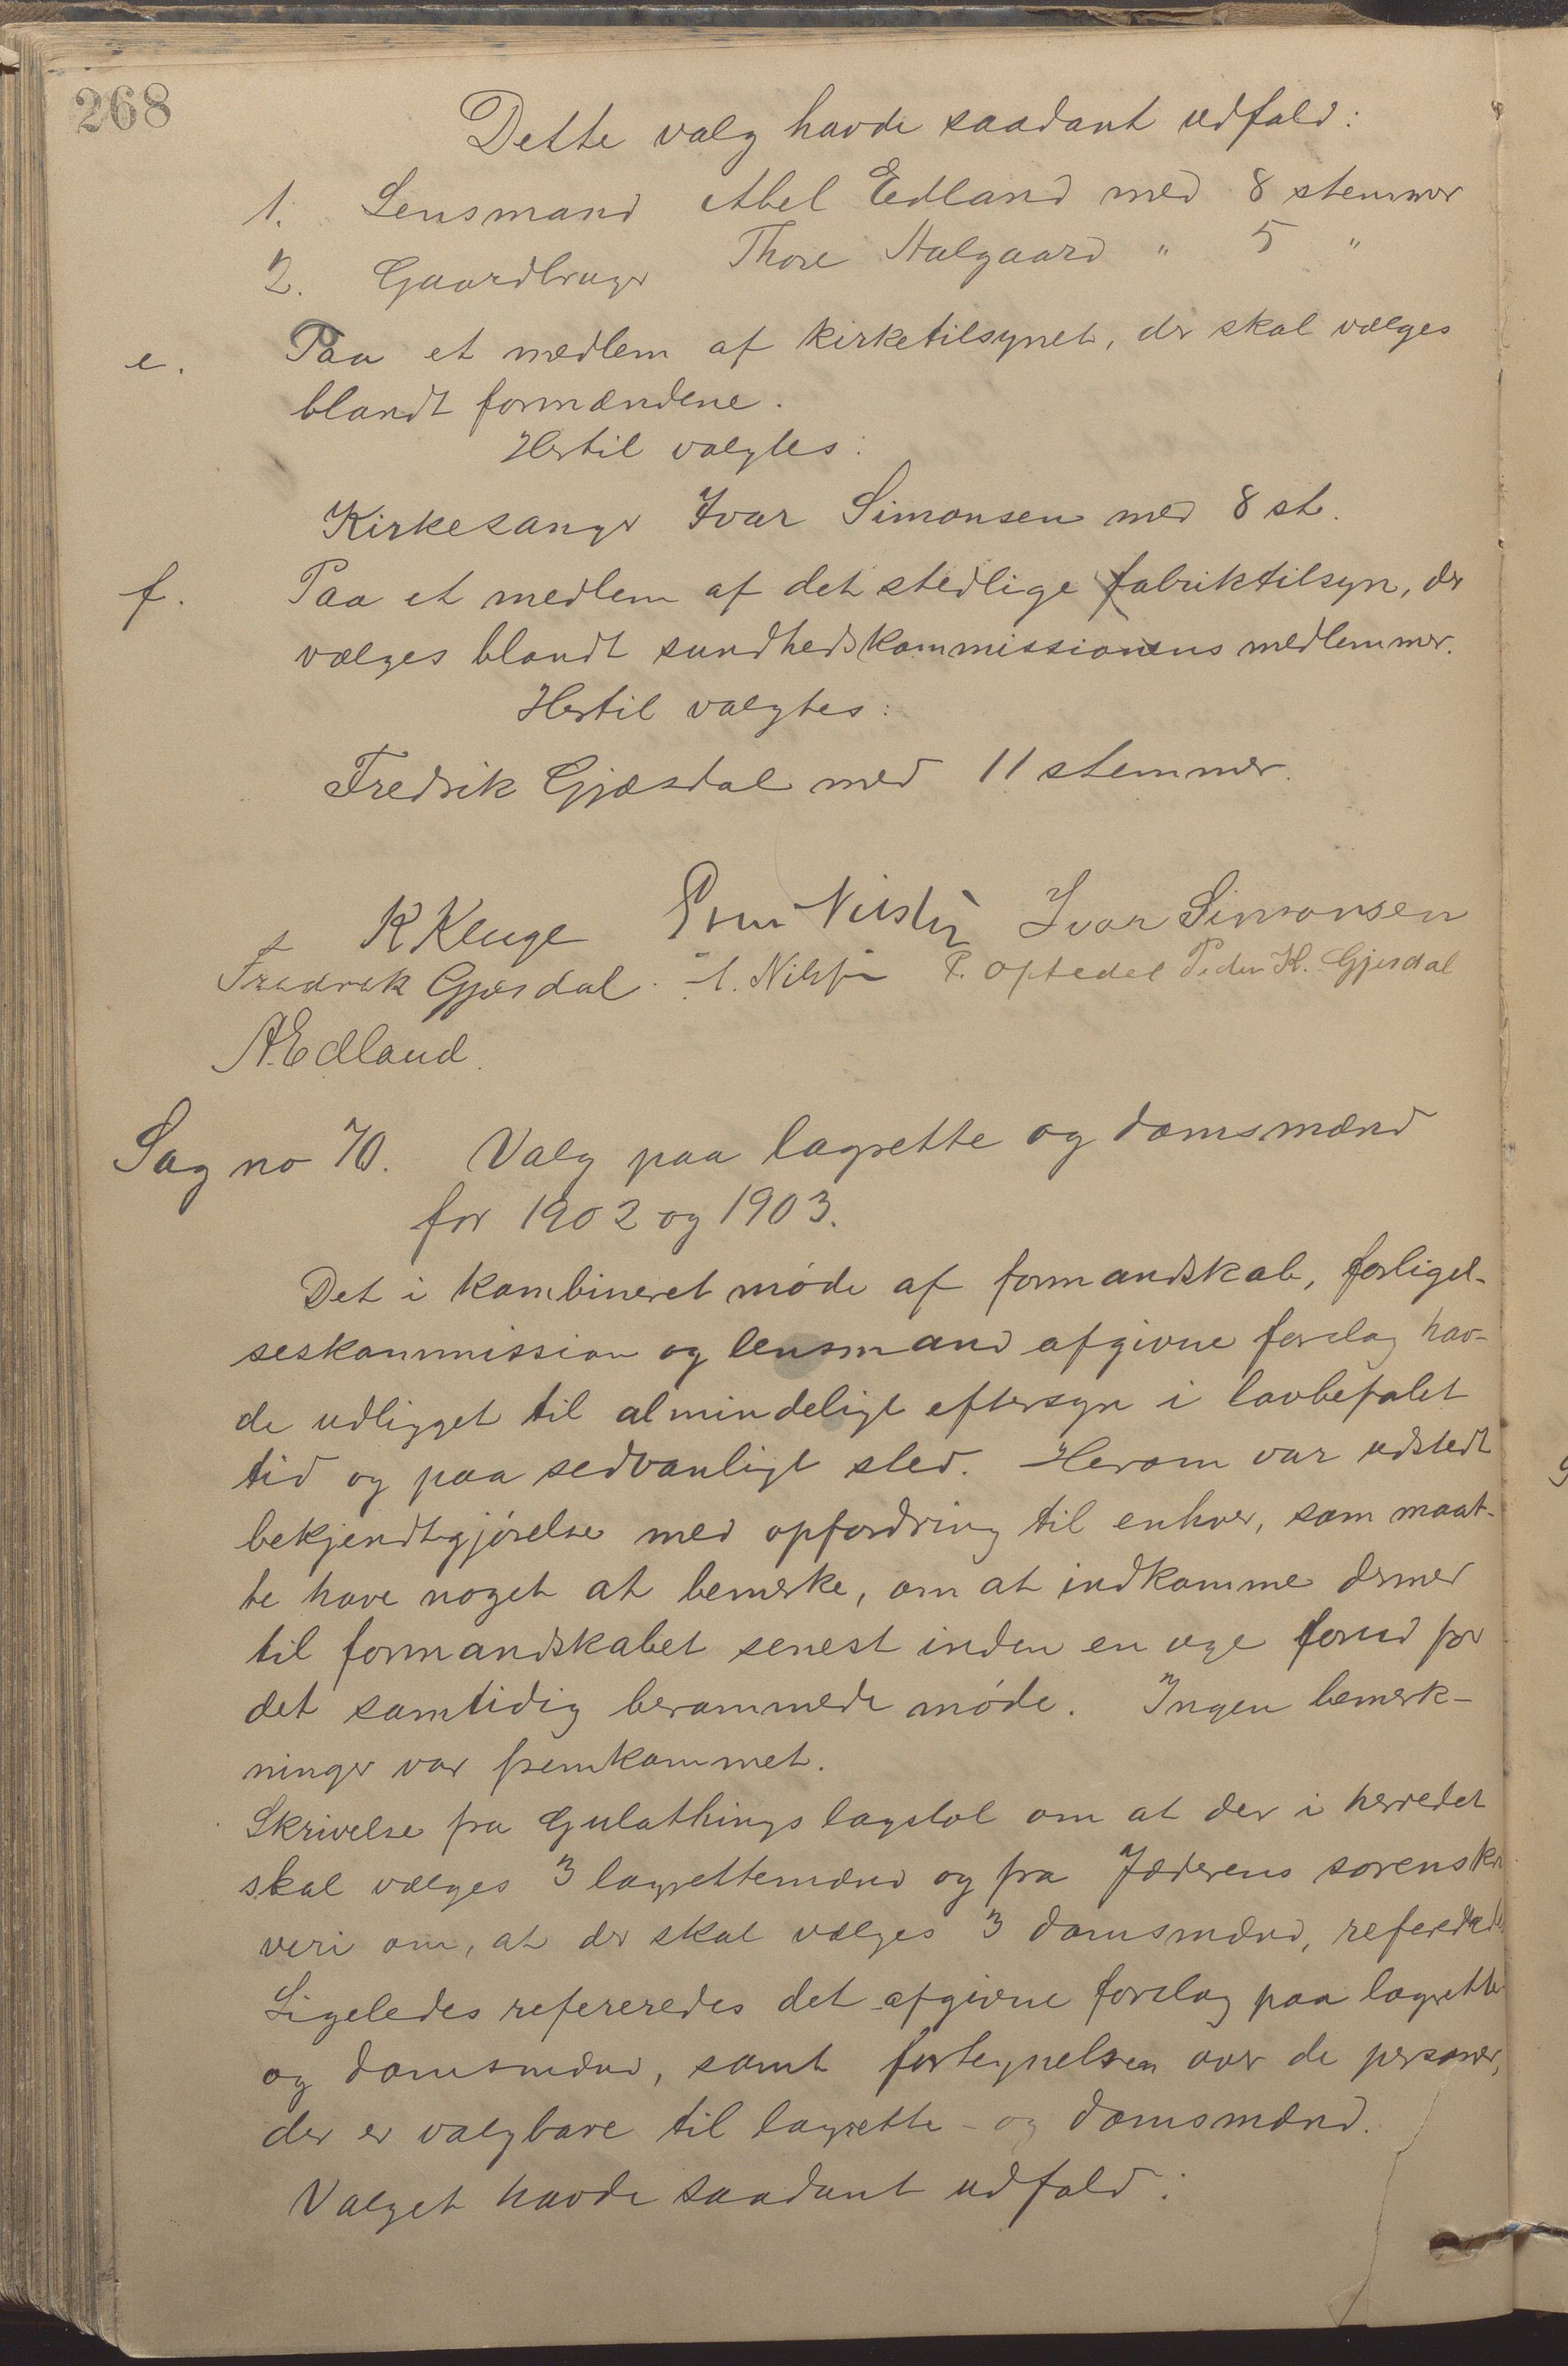 268
Dette valg havde saadant udfald:
1. Lensmand Abel Edland med 8 stemmer
2. Gaardbruger Thore Aalgaard " 5 "
e. Paa et medlem af kirketilsynet, der skal vælges
blandt formændene.
Hertil valgtes:
Kirkesanger Ivar Simonsen med 8 st.
f. Paa et medlem af det stedlige fabriktilsyn, der
vælges blandt sundhedskommissionens medlemmer.
Hertil valgtes:
Fredrik Gjæsdal med 11 stemmer.
K Kluge Ivar Simonsen
Fredrik Gjesdal. P. Optedal Peder K. Gjesdal
A. Edland.
Sag no 70. Valg paa lagrette og domsmænd
for 1902 og 1903.
Det i kombineret møde af formandskab, forligel-
seskommission og lensmand afgivne forslag hav-
de udligget til almindeligt eftersyn i lovbefalet
tid og paa sedvanligt sted. Herom var udstedt
bekjendtgjørelse med opfordring til enhver, som maat-
te have noget at bemerke, om at indkomme dermed
til formandskabet senest inden en uge forud for
det samtidig berammede møde. Ingen bemerk-
ninger var fremkommet.
Skrivelse fra Gulathings lagstol om at der i herredet
skal vælges 3 lagrettemænd og fra Jæderens sorenskri
veri om, at der skal vælges 3 domsmænd, refereredes.
Ligeledes refereredes det afgivne forslag paa lagrette
og domsmænd, samt fortegnelsen over de personer,
der er valgbare til lagrette- og domsmænd.
Valget havde saadant udfald: